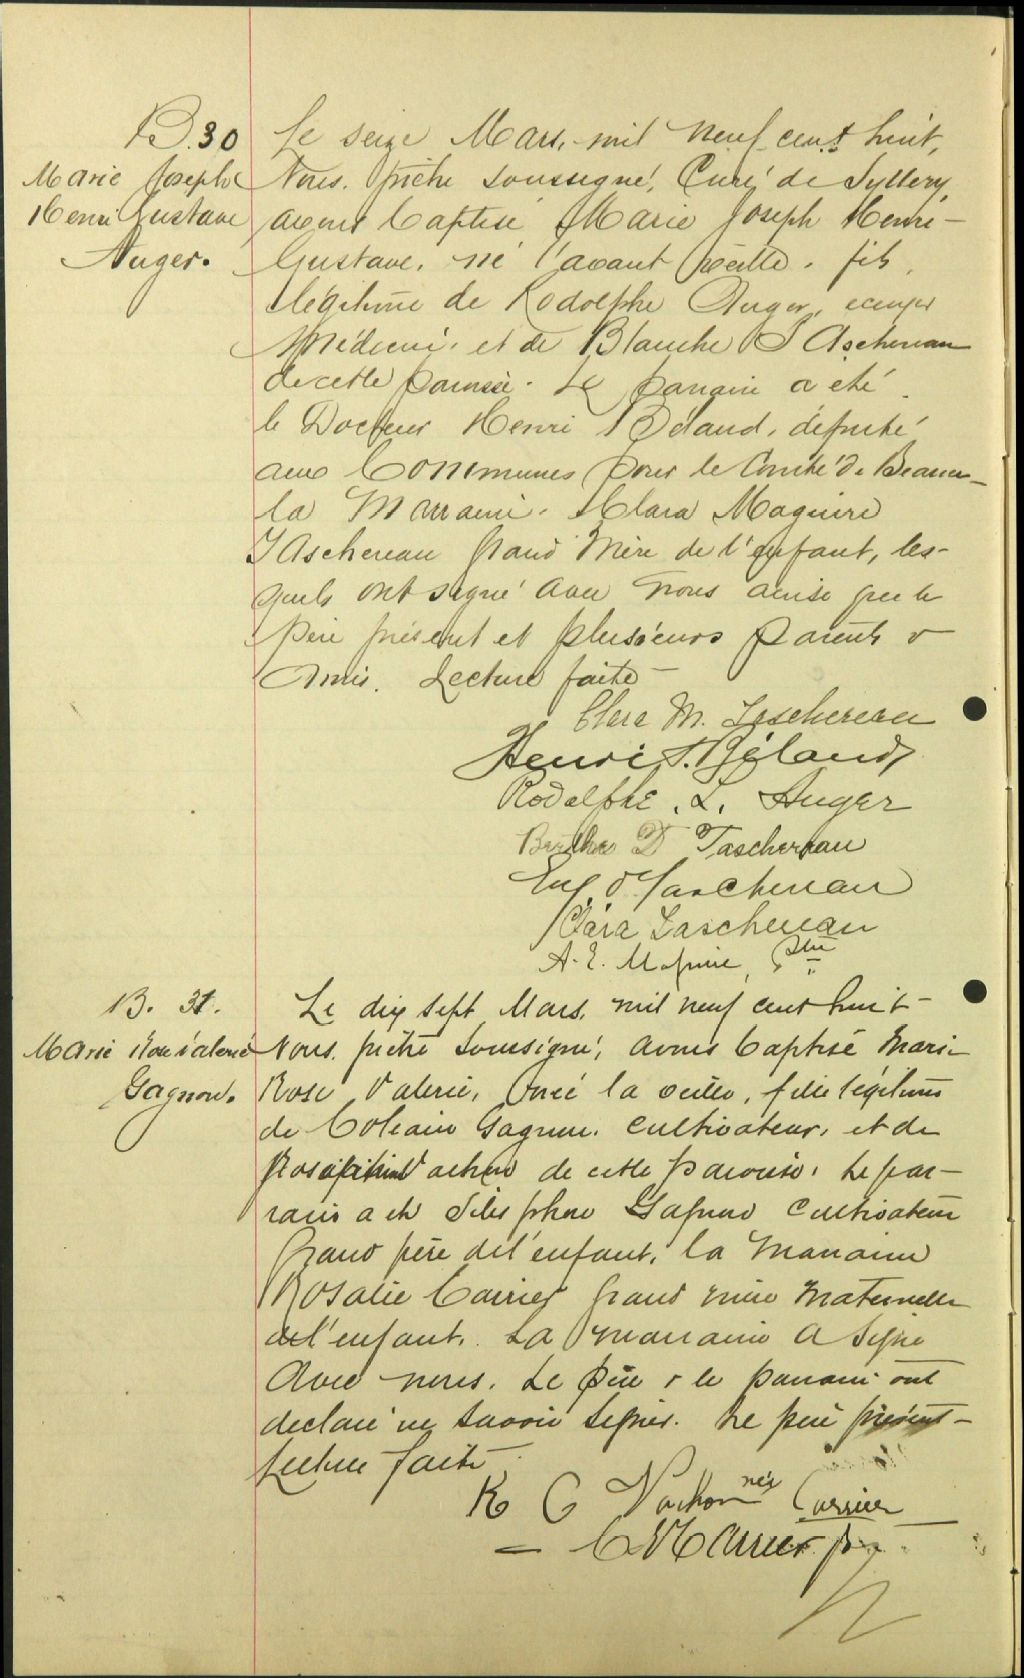 B. 30
Marie Joseph
Henri Gustave
Auger.
Le seize Mars, mil neuf cent huit,
Nous, prêtre soussigné, Curé de Syllery
avons baptisé Marie Joseph Henri-
Gustave, né l'avant veille, fils
légitime de Rodolphe Auger, écuyer
Médecin, et de Blanche Taschereau
de cette paroisse. Le parrain a été
le Docteur Henri Béland, député
aux Communes pour le Comté de Beauce
la Marraine, Clara Maguire
Taschereau grand'Mère de l'enfant, les-
quels ont signé avec nous ainsi que le
père présent et plusieurs parents &
Amis. Lecture faite
Clara M. Taschereau
Henri S. Béland
Rodolphe. L. Auger
Berthe D Taschereau
Taschereau
Clara Taschereau
A. E. Maguire, Ptre
B. 31.
Marie Rose Valérie
Gagnon.
Le dix sept Mars, mil neuf cent huit-
Nous, prêtre soussigné, avons baptisé Marie
Rose Valérie, née la veille, fille légitime
de Gagnon, cultivateur, et de
Vachon de cette paroisse. Le par-
rain a été Gagnon cultivateur
Grand père de l'enfant, la Marraine
Rosalie Carrier grand mère maternelle
de l'enfant. La marraine a signé
avec nous. Le père & le parrain ont
déclaré ne savoir signer. Le père présent-
Lecture faite
R C Vachon née Carrier